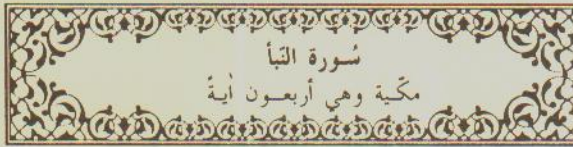 سُورة النّبأ
مكّية وهي أربعـون أيةً